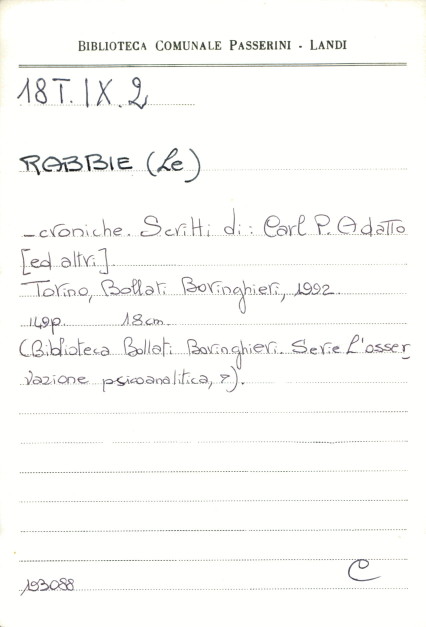 BIBLIOTECA COMUNALE PASSERINI - LANDI
18T.IX.2
RABBIE (Le)
-croniche. Scritti di: Carl P. Adatto
[ed altri].
Torino, Bollati Boringhieri, 1992.
149p. 18cm.
(Biblioteca Bollati Boringhieri. Serie L'osser
vazione psicoanalitica, 7).
193088
C